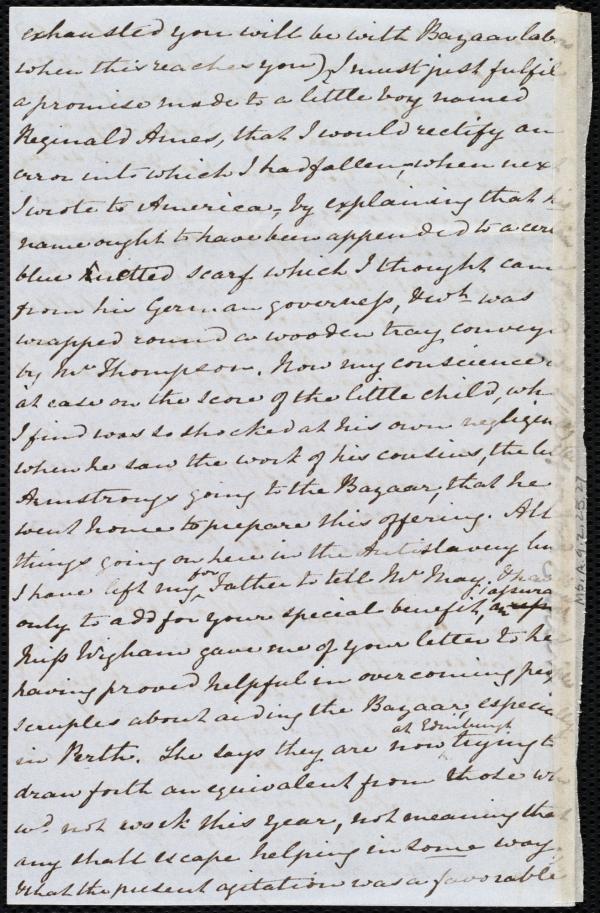 exhausted you will be with Bazaar lab
when this reaches you), I must just fulfil
a promise made to a little boy named
Reginald Ames, that I would rectify an
error into which I had fallen, when nex
I wrote to America, by explaining that h
name ought to have been appended to a cer
blue knitted scarf which I thought cam
from his German governess, & wh was
wrapped round a wooden tray convey
by Mr Thompson. Now my conscience
at ease on the score of the little child, wh
I find was so shocked at his own negligen
when he saw the work of his cousins, the
Armstrongs going to the Bazaar, that he
went home to prepare this offering. All
things going on here in the Antislavery lin
I have left my for Father to tell Mr May, & ha
only to add for your special benefit, assura
Miss Wigham gave me of your letter to he
having proved helpful in overcoming
scruples about aiding the Bazaar, especia
in Perth. She says they are now at Edinburgh trying t
draw forth an equivalent from those wh
wd not work this year, not meaning tha
any shall escape helping in some way,
& that the present agitation was a favorable
MS.A.9.2.25.27